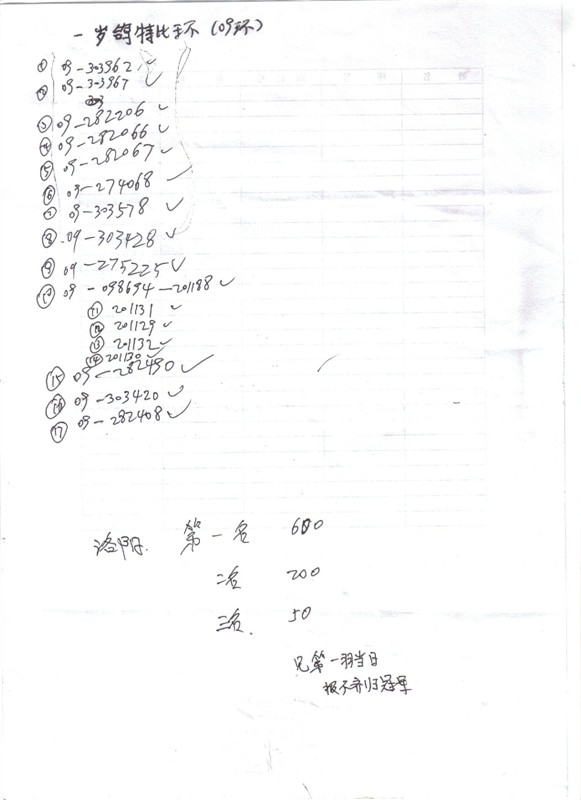 一岁鸽特比环（09环）
① 09-303962 ✓
② 09-303967 ✓
③ 09-282206 ✓
④ 09-282066 ✓
⑤ 09-282067 ✓
⑥ 09-274068 ✓
⑦ 09-303578 ✓
⑧ 09-303428 ✓
⑨ 09-275225 ✓
⑩ 09-098694-201188 ✓
⑪ 201131 ✓
⑫ 201129 ✓
⑬ 201132 ✓
⑭ 201130 ✓
⑮ 09-282490 ✓
⑯ 09-303420 ✓
⑰ 09-282408 ✓
洛阳. 第一名 600
二名 200
三名. 50
兄第一羽当日
报不齐归冠军